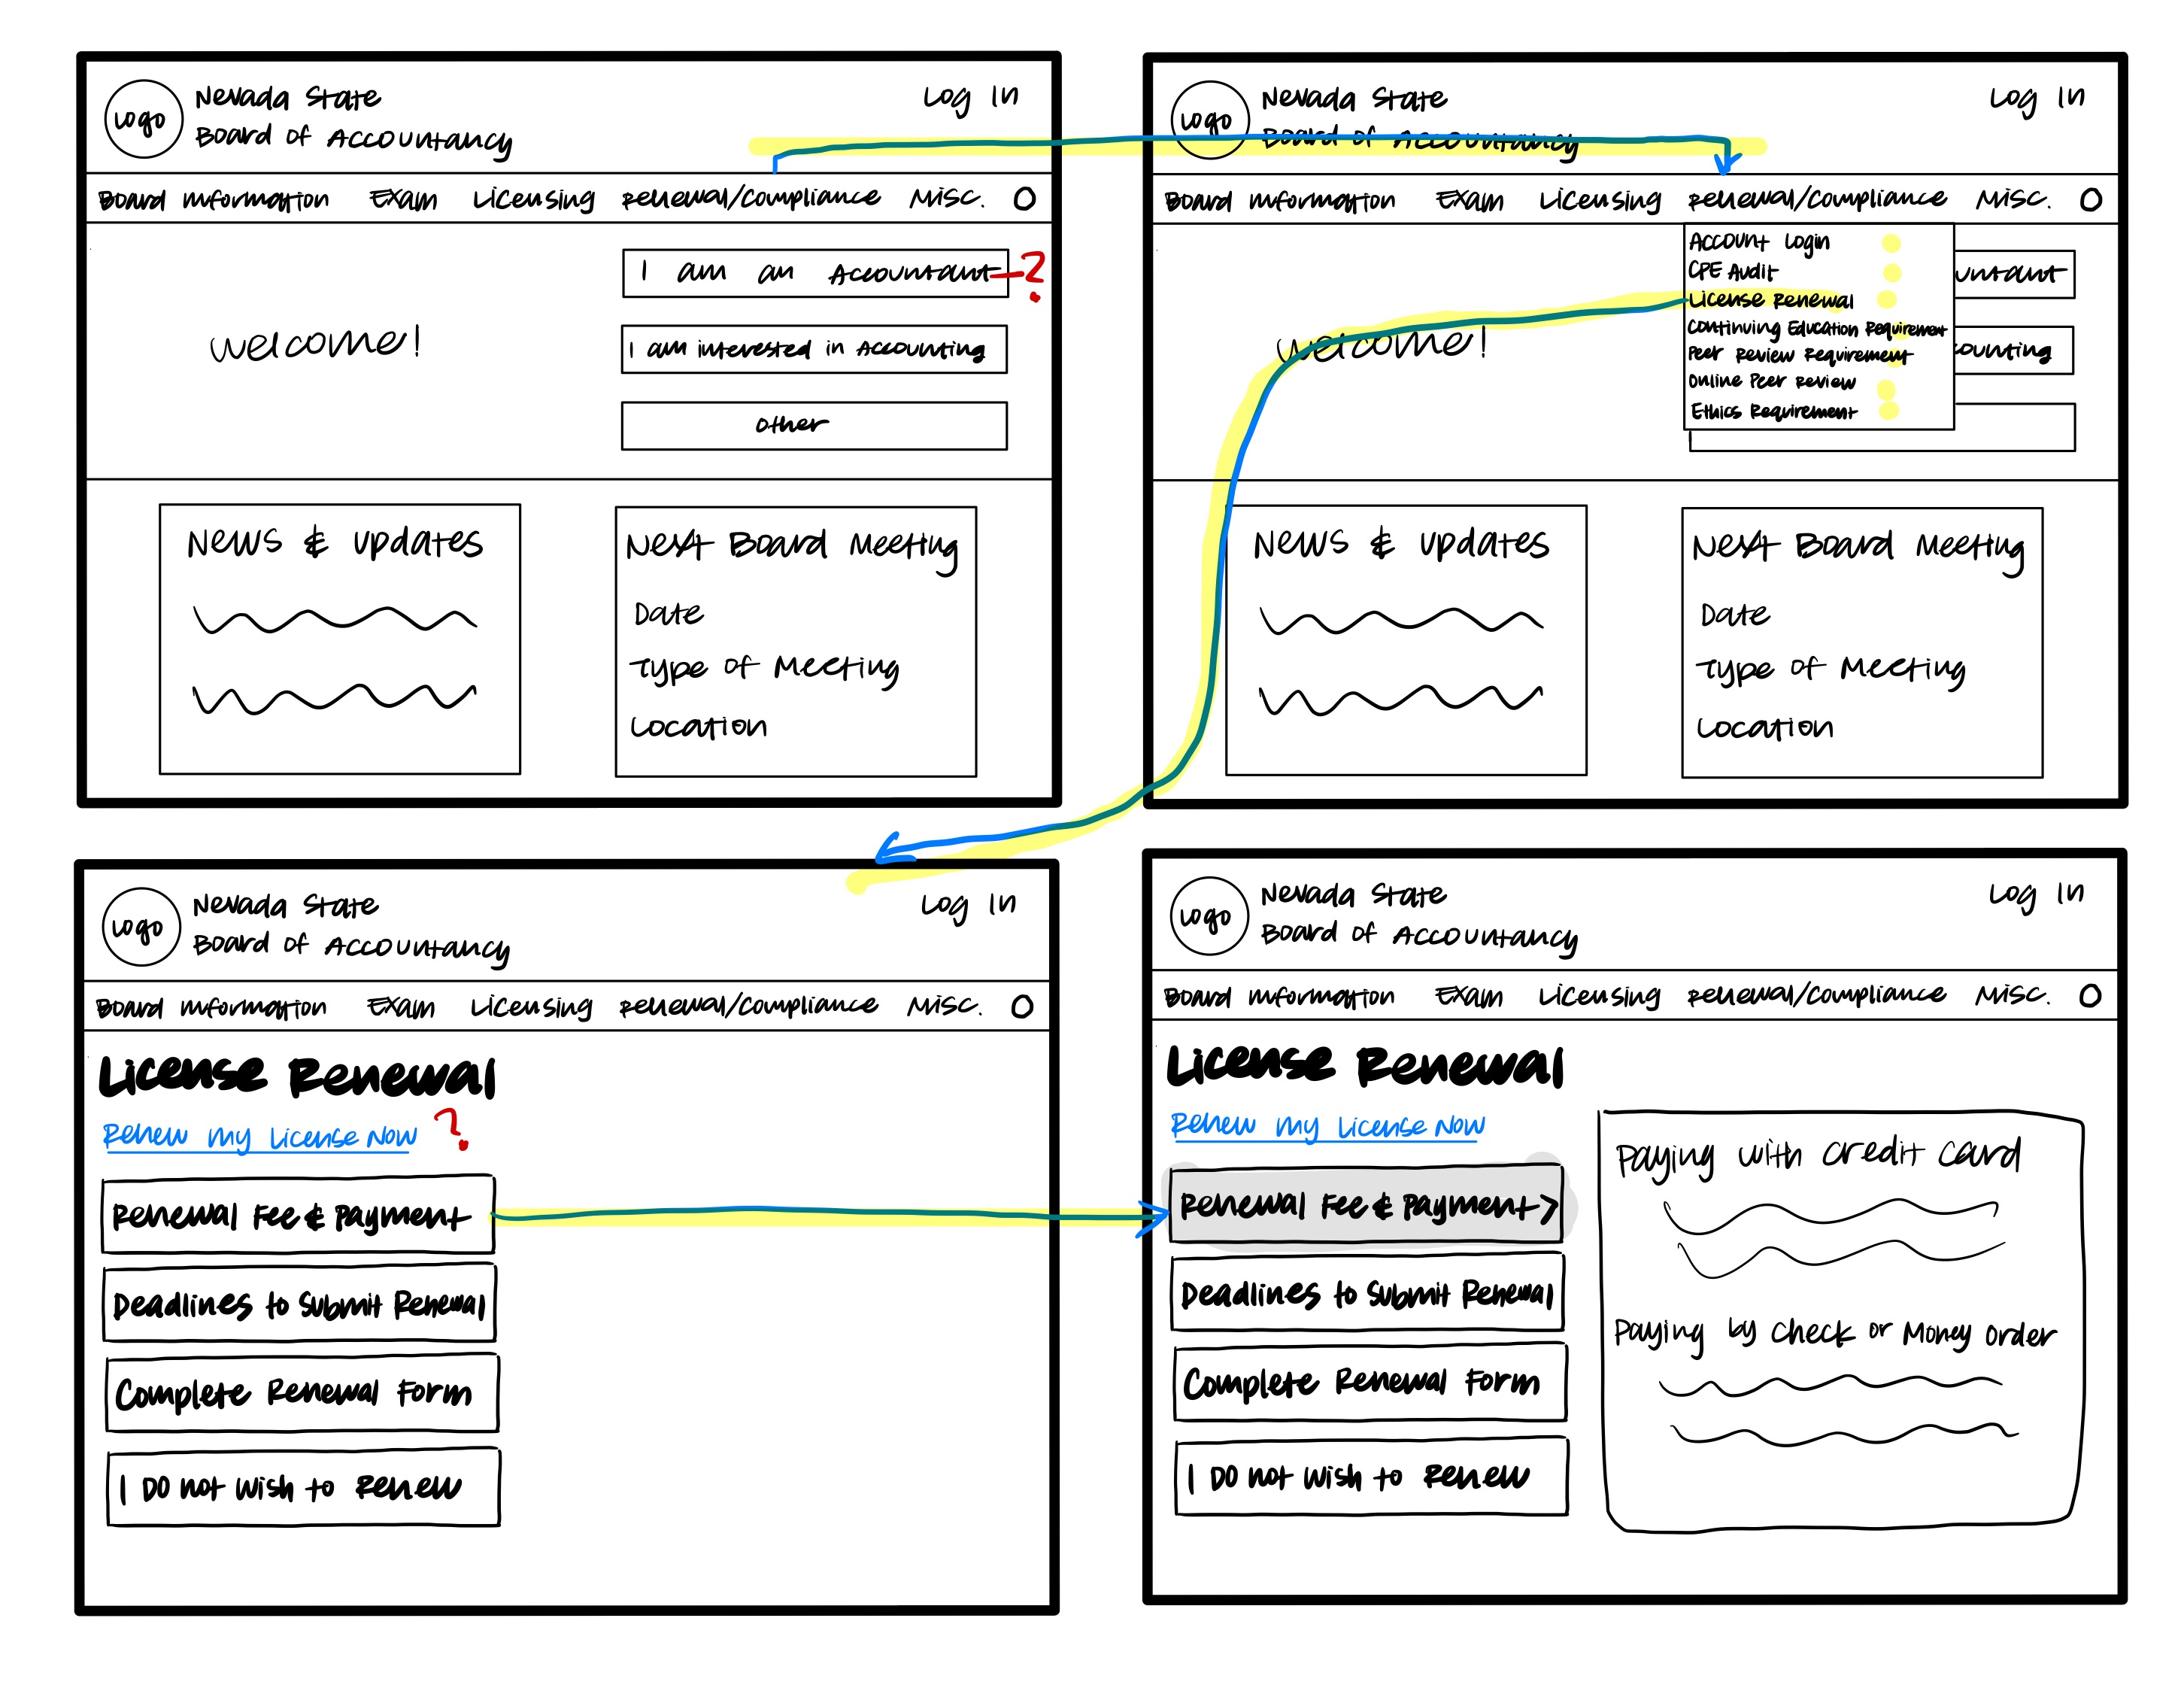 Logo
Nevada State
Board of Accountancy
Log In
Board Information Exam Licensing Renewal/Compliance Misc.
Welcome!
I am an Accountant ?
I am interested in Accounting
Other
News & Updates
Next Board Meeting
Date
Type of Meeting
Location
Logo
Nevada State
Board of Accountancy
Log In
Board Information Exam Licensing Renewal/Compliance Misc.
Welcome!
Account Login
CPE Audit
License Renewal
Continuing Education Requirement
Peer Review Requirement
Online Peer Review
Ethics Requirement
untant
counting
News & Updates
Next Board Meeting
Date
Type of Meeting
Location
Logo
Nevada State
Board of Accountancy
Log In
Board Information Exam Licensing Renewal/Compliance Misc.
License Renewal
Renew my License Now ?
Renewal Fee & Payment
Deadlines to Submit Renewal
Complete Renewal Form
I Do not wish to Renew
Logo
Nevada State
Board of Accountancy
Log In
Board Information Exam Licensing Renewal/Compliance Misc.
License Renewal
Renew my License Now
Renewal Fee & Payment >
Deadlines to Submit Renewal
Complete Renewal Form
I Do not wish to Renew
Paying with Credit Card
Paying by Check or Money Order